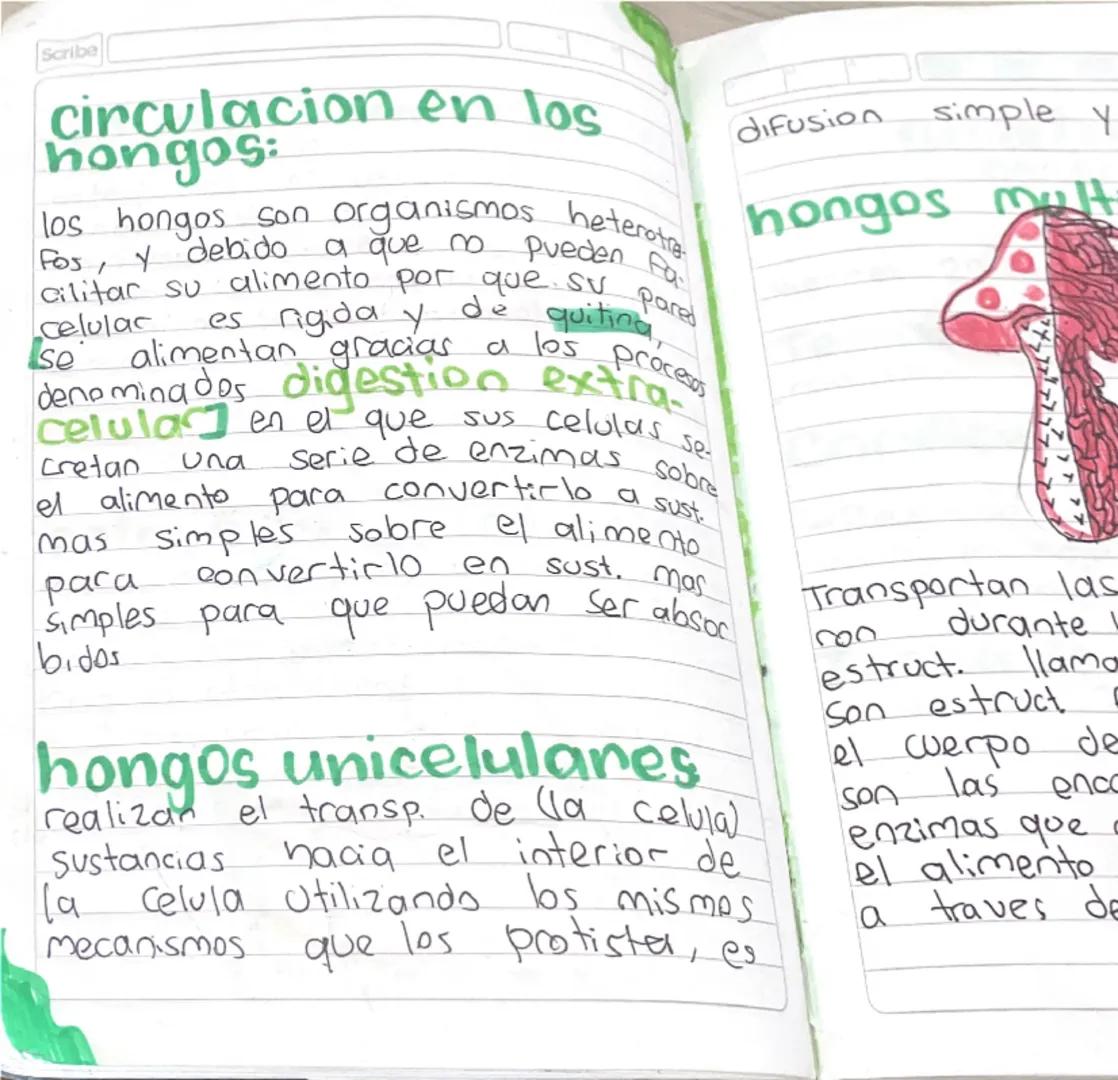 Scribe
circulacion en los
hongos:
los hongos son organismos heterotro-
fos, y debido a que no pueden fa-
cilitar su alimento por que su pared
celular es rigida y de quitina,
[se alimentan gracias a los procesos
denominados digestion extra-
celular] en el que sus celulas se-
cretan una serie de enzimas sobre
el alimento para convertirlo a sust.
mas simples sobre el alimento
para convertirlo en sust. mas
simples para que puedan ser absor
bidos
hongos unicelulares
realizan el transp. de (la celula)
sustancias hacia el interior de
la celula utilizando los mismos
mecanismos que los protistas, es
difusion simple y
hongos mult
Transportan las
ron durante l
estruct. llama
son estruct
el cuerpo de
son las enca
enzimas que
el alimento
a traves de